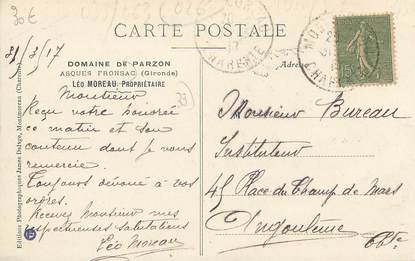 30€
CARTE POSTALE
DOMAINE DE PARZON
ASQUES FRONSAC (Gironde)
LÉO MOREAU PROPRIÉTAIRE
31/3/17
Adresse
Monsieur
Reçu votre honorée
ce matin et son
contenu dont je vous
remercie.
Toujours dévoué à vos
ordres.
Recevez Monsieur mes
respectueuses salutations
Léo Moreau
Monsieur Bureau
Instituteur
45 Place du Champ de Mars
Angoulème
Editions Photographiques James Delage, Montmoreau (Charente)
CHARENTE
15